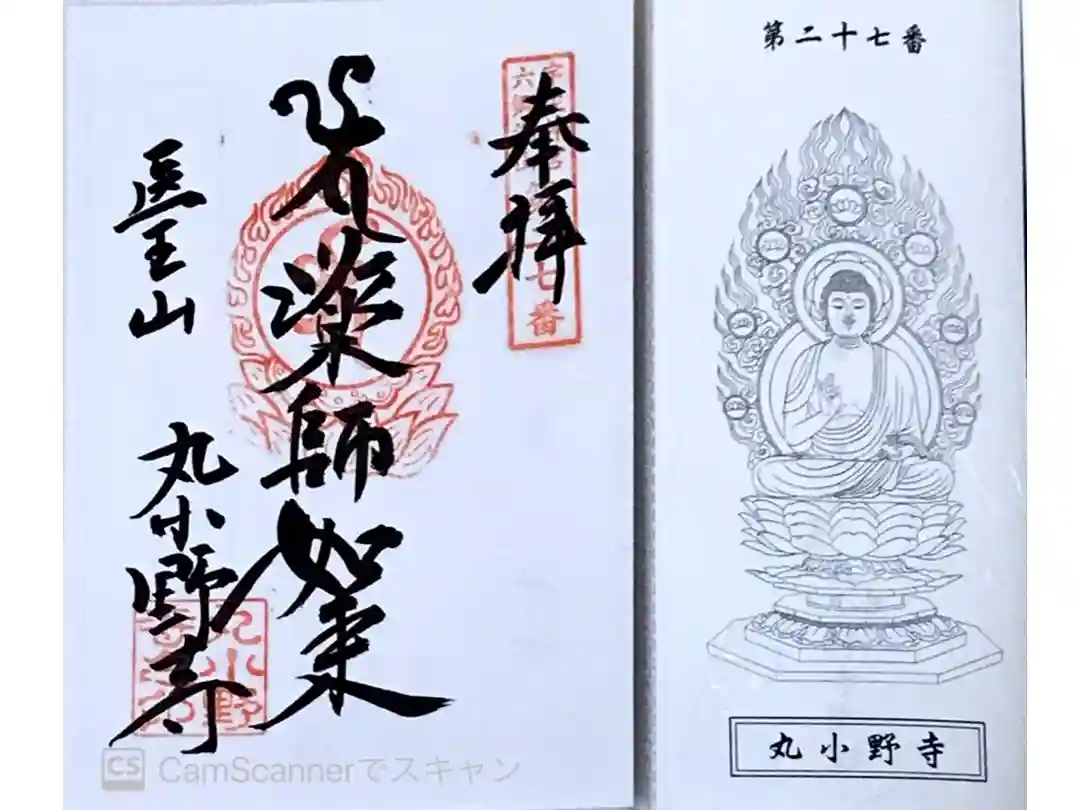 奉拝
薬師如来
医王山
丸小野寺
七番
丸小野
CS CamScannerでスキャン
第二十七番
丸小野寺